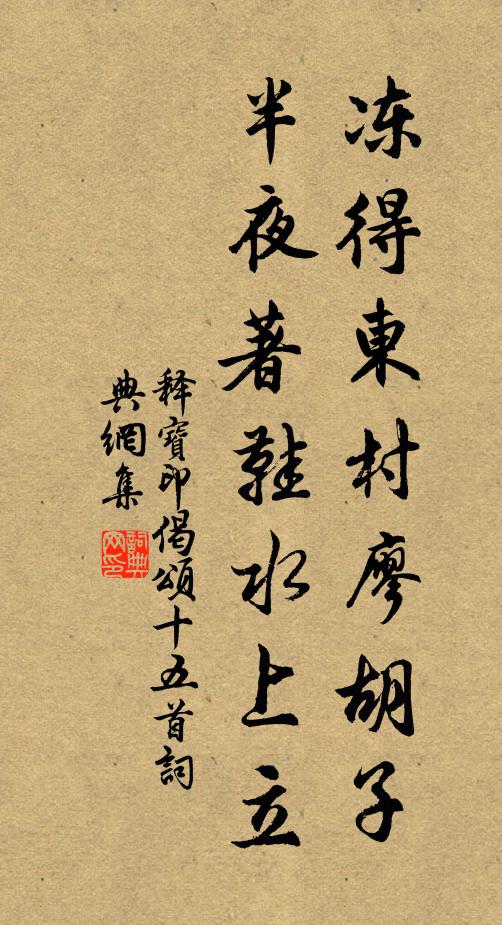 冻得東村廖胡子
半夜著鞋水上立
释寶印偈頌十五首詞
典網集
詞典網印